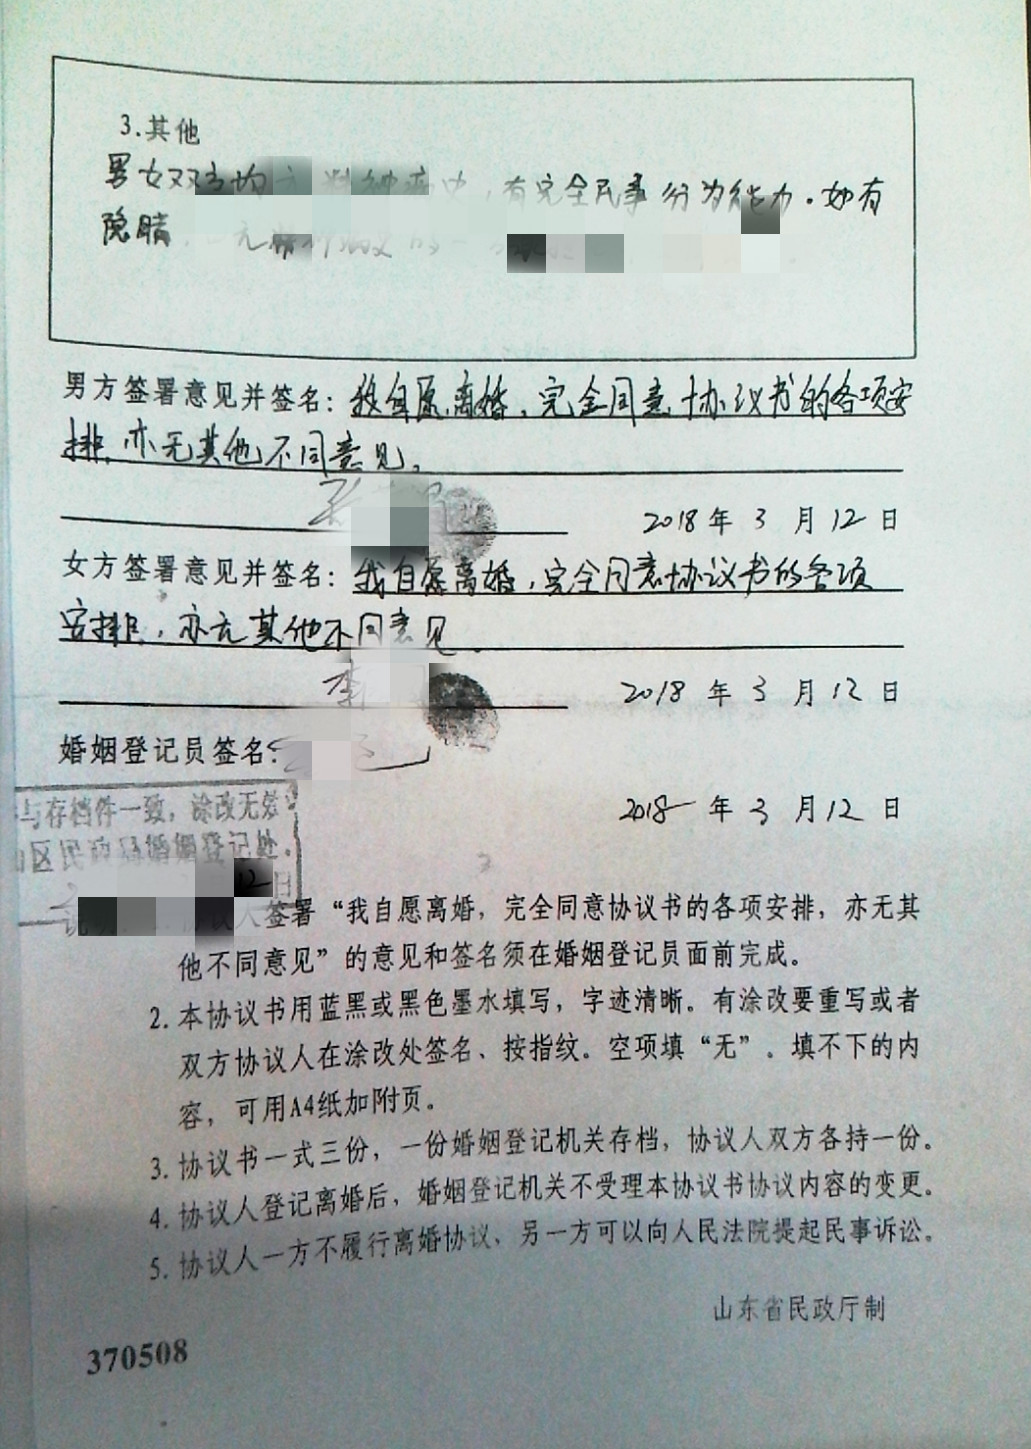 3.其他
男女双方均 精神病史，有完全民事行为能力。如有
隐瞒，
男方签署意见并签名：我自愿离婚，完全同意协议书的各项安
排，亦无其他不同意见。
2018年3月12日
女方签署意见并签名：我自愿离婚，完全同意协议书的各项
安排，亦无其他不同意见。
李
2018年3月12日
婚姻登记员签名：
2018年3月12日
与存档件一致，涂改无效
山区民政局婚姻登记处。
12日
议人签署“我自愿离婚，完全同意协议书的各项安排，亦无其
他不同意见”的意见和签名须在婚姻登记员面前完成。
2. 本协议书用蓝黑或黑色墨水填写，字迹清晰。有涂改要重写或者
双方协议人在涂改处签名、按指纹。空项填“无”。填不下的内
容，可用A4纸加附页。
3. 协议书一式三份，一份婚姻登记机关存档，协议人双方各持一份。
4. 协议人登记离婚后，婚姻登记机关不受理本协议书协议内容的变更。
5. 协议人一方不履行离婚协议、另一方可以向人民法院提起民事诉讼。
山东省民政厅制
370508